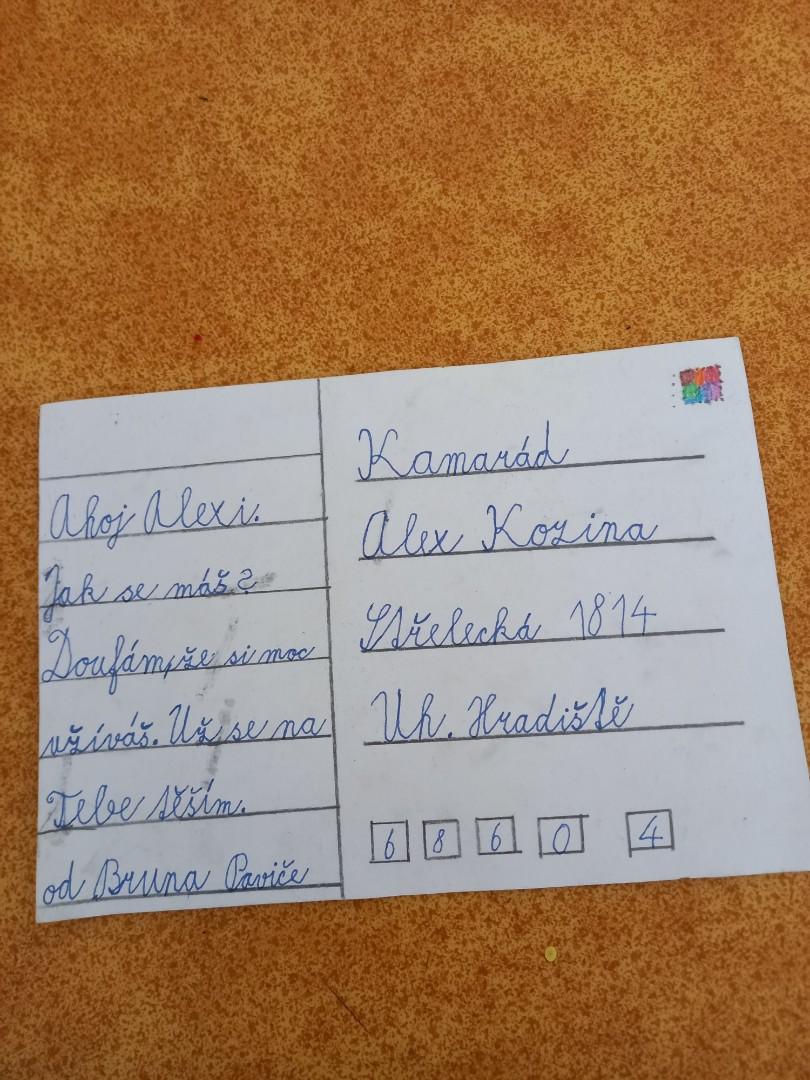 Ahoj Alexi.
Jak se máš?
Doufám, že si moc
užíváš. Už se na
Tebe těším.
od Bruna Paviče
Kamarád
Alex Kozina
Střelecká 1814
Uh. Hradiště
6 8 6 0 4